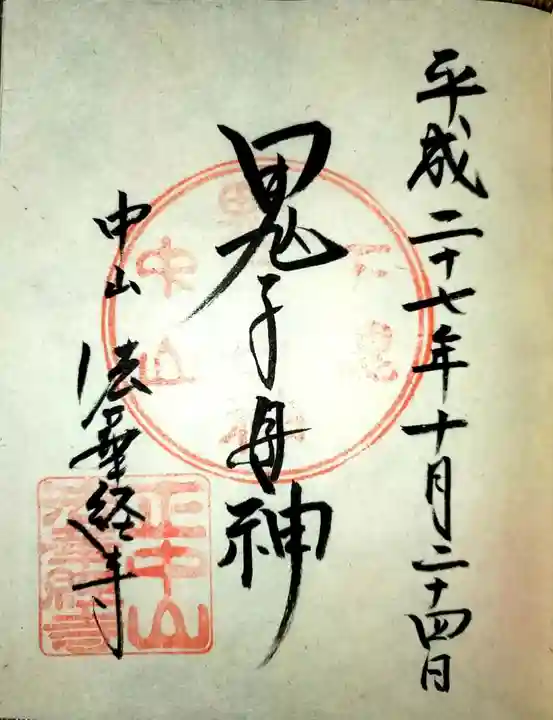 平成二十七年十月二十四日
鬼子母神
中山 法華経寺
中山
正中山